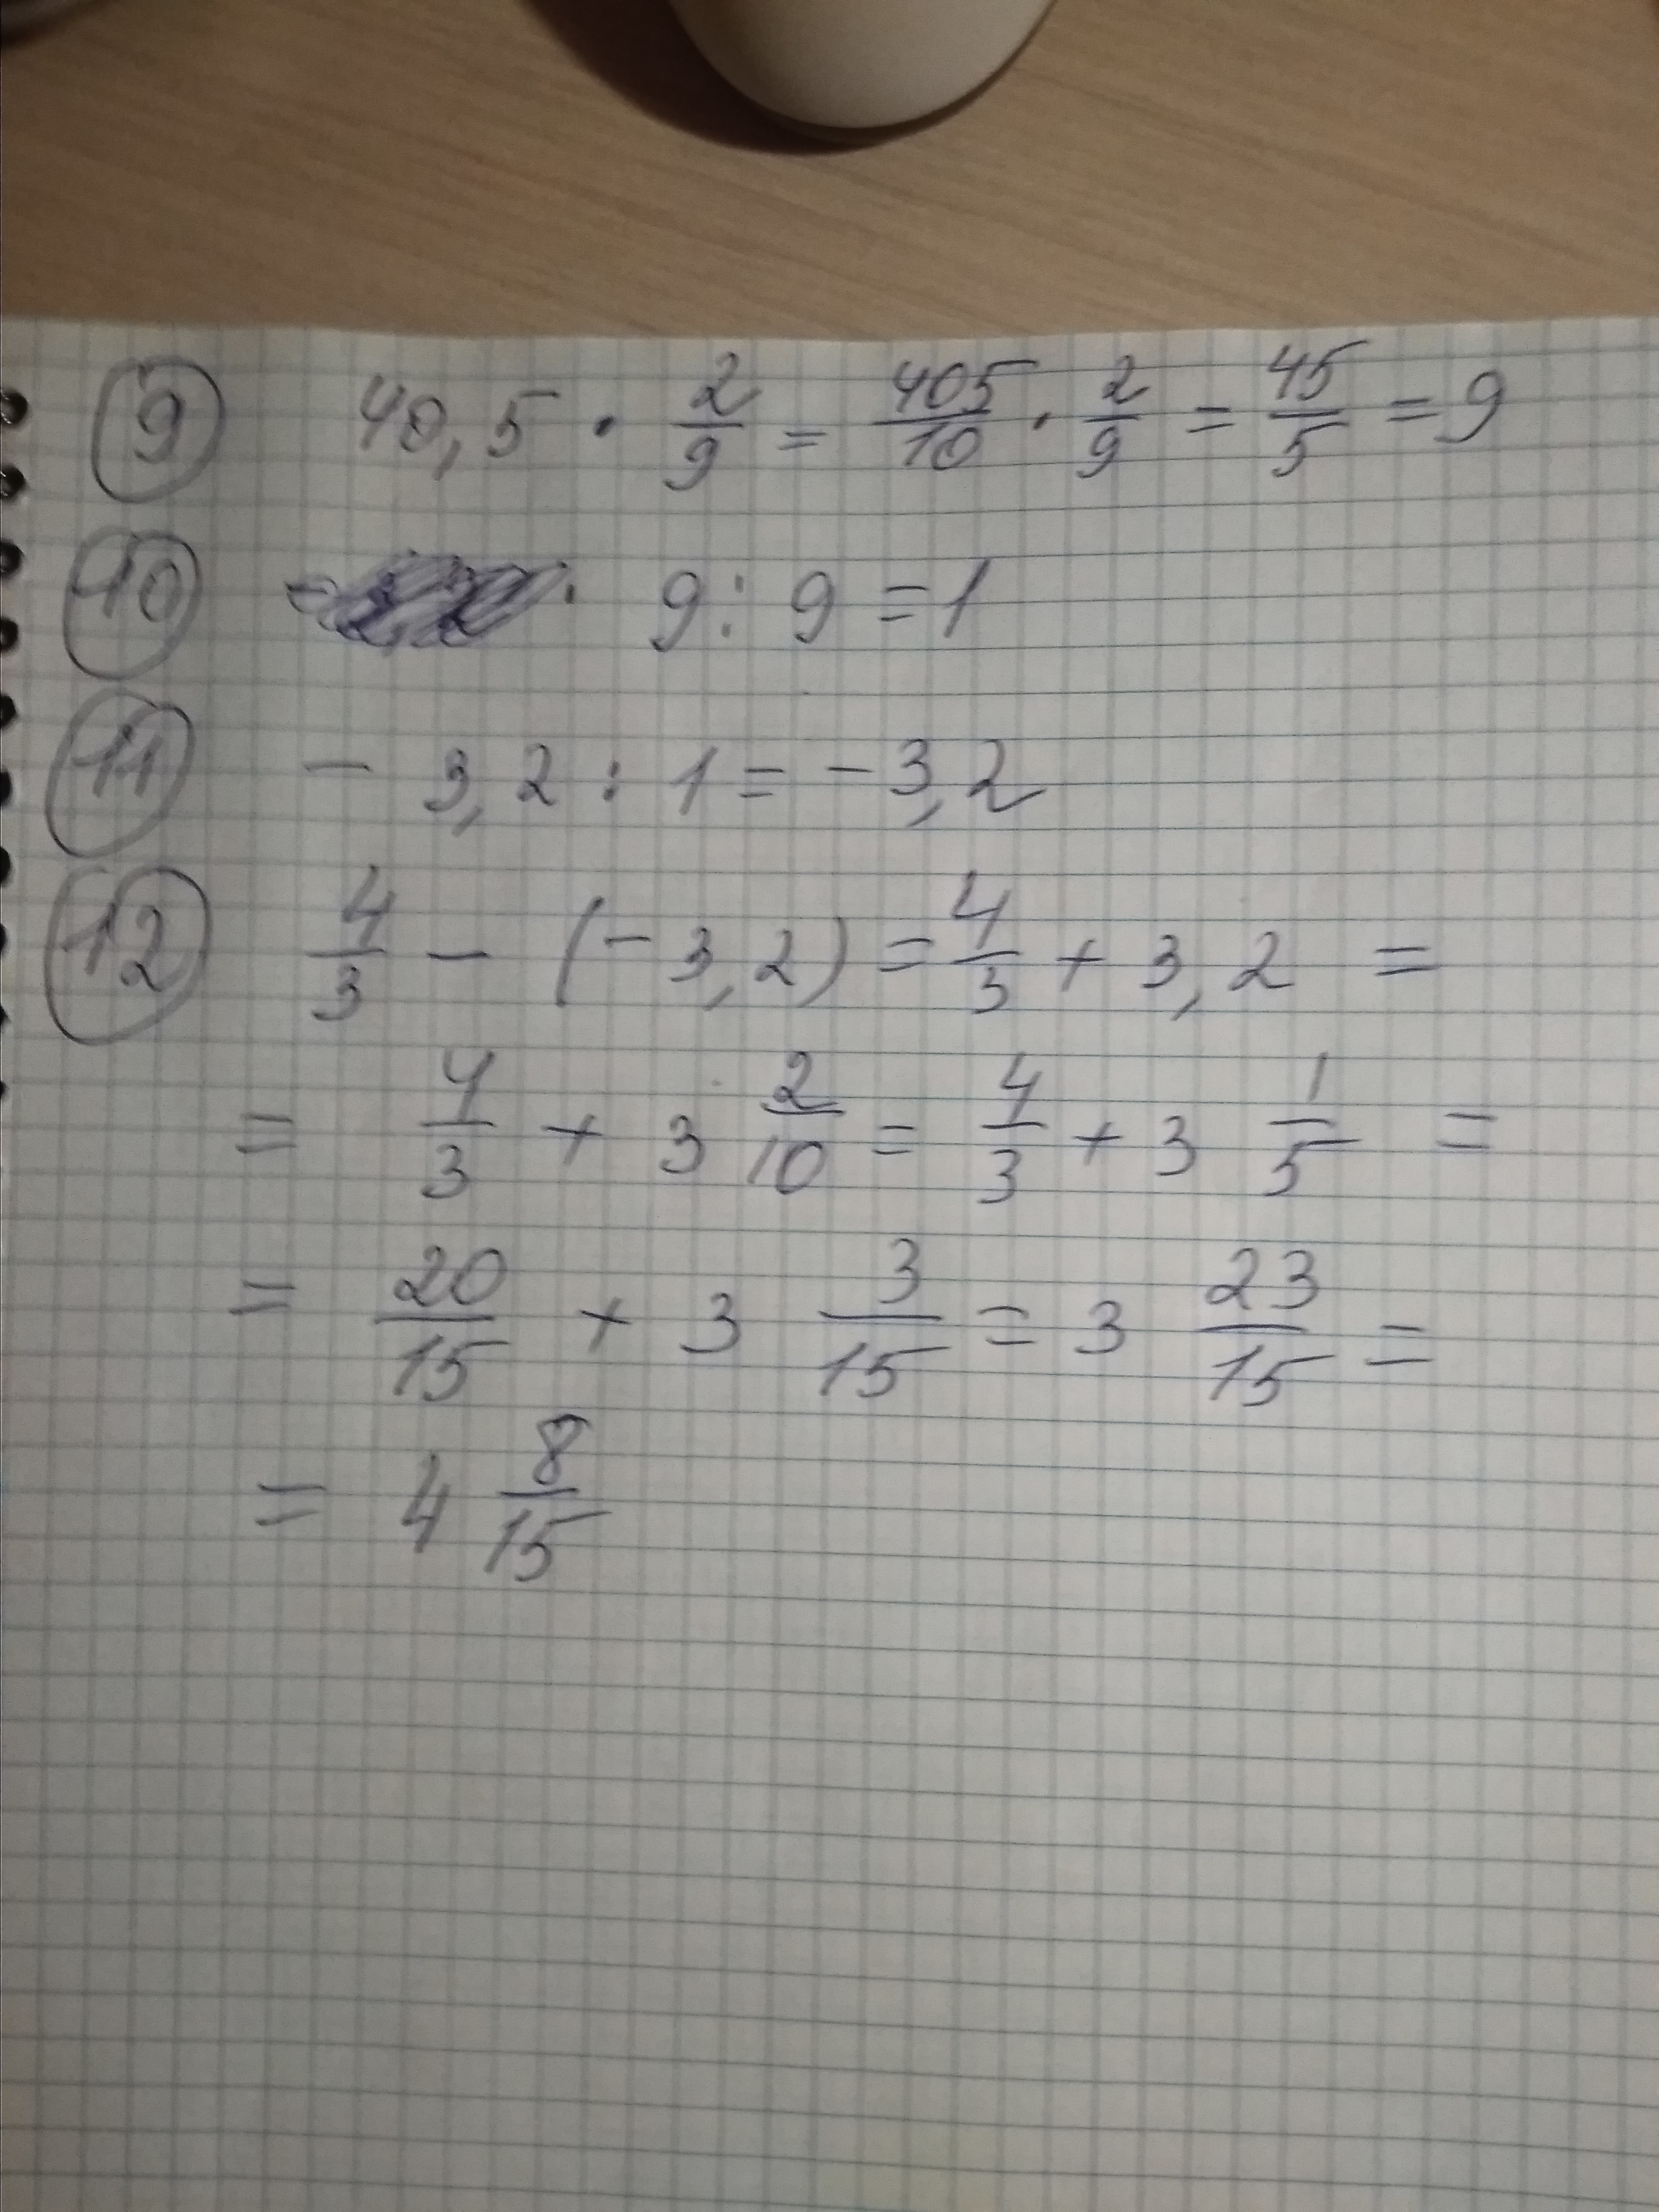 9) 40,5 · 2/9 = 405/10 · 2/9 = 45/5 = 9
10) 9 : 9 = 1
11) - 3,2 : 1 = - 3,2
12) 4/3 - (- 3,2) = 4/3 + 3,2 =
= 4/3 + 3 2/10 = 4/3 + 3 1/5 =
= 20/15 + 3 3/15 = 3 23/15 =
= 4 8/15